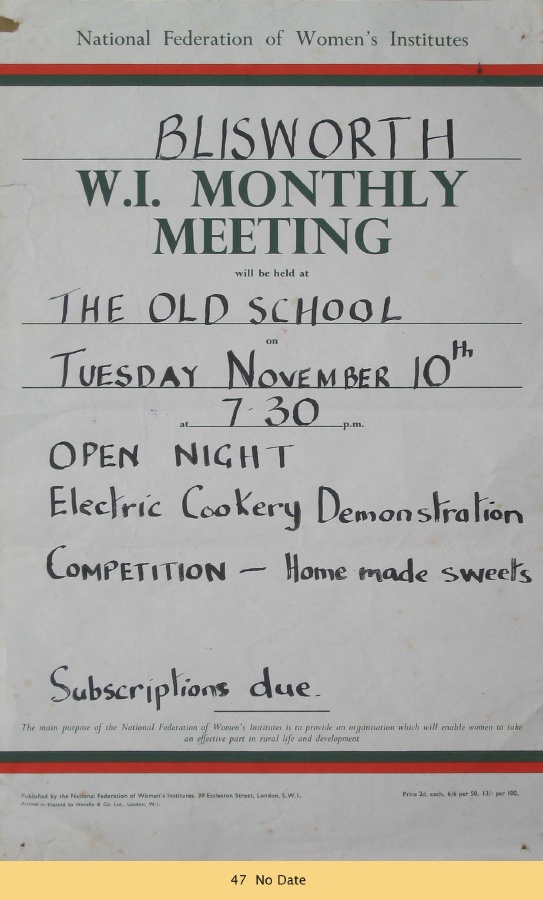 National Federation of Women's Institutes
BLISWORTH
W.I. MONTHLY
MEETING
will be held at
THE OLD SCHOOL
on
TUESDAY NOVEMBER 10th
at 7.30 p.m.
OPEN NIGHT
Electric Cookery Demonstration
COMPETITION – Home made sweets
Subscriptions due.
The main purpose of the National Federation of Women's Institutes is to provide an organisation which will enable women to take
an effective part in rural life and development
Published by the National Federation of Women's Institutes, 39 Eccleston Street, London, S.W.1.
Price 2d. each. 6/6 per 50. 13/- per 100.
Printed in England by Novello & Co. Ltd., London, W.1.
47 No Date